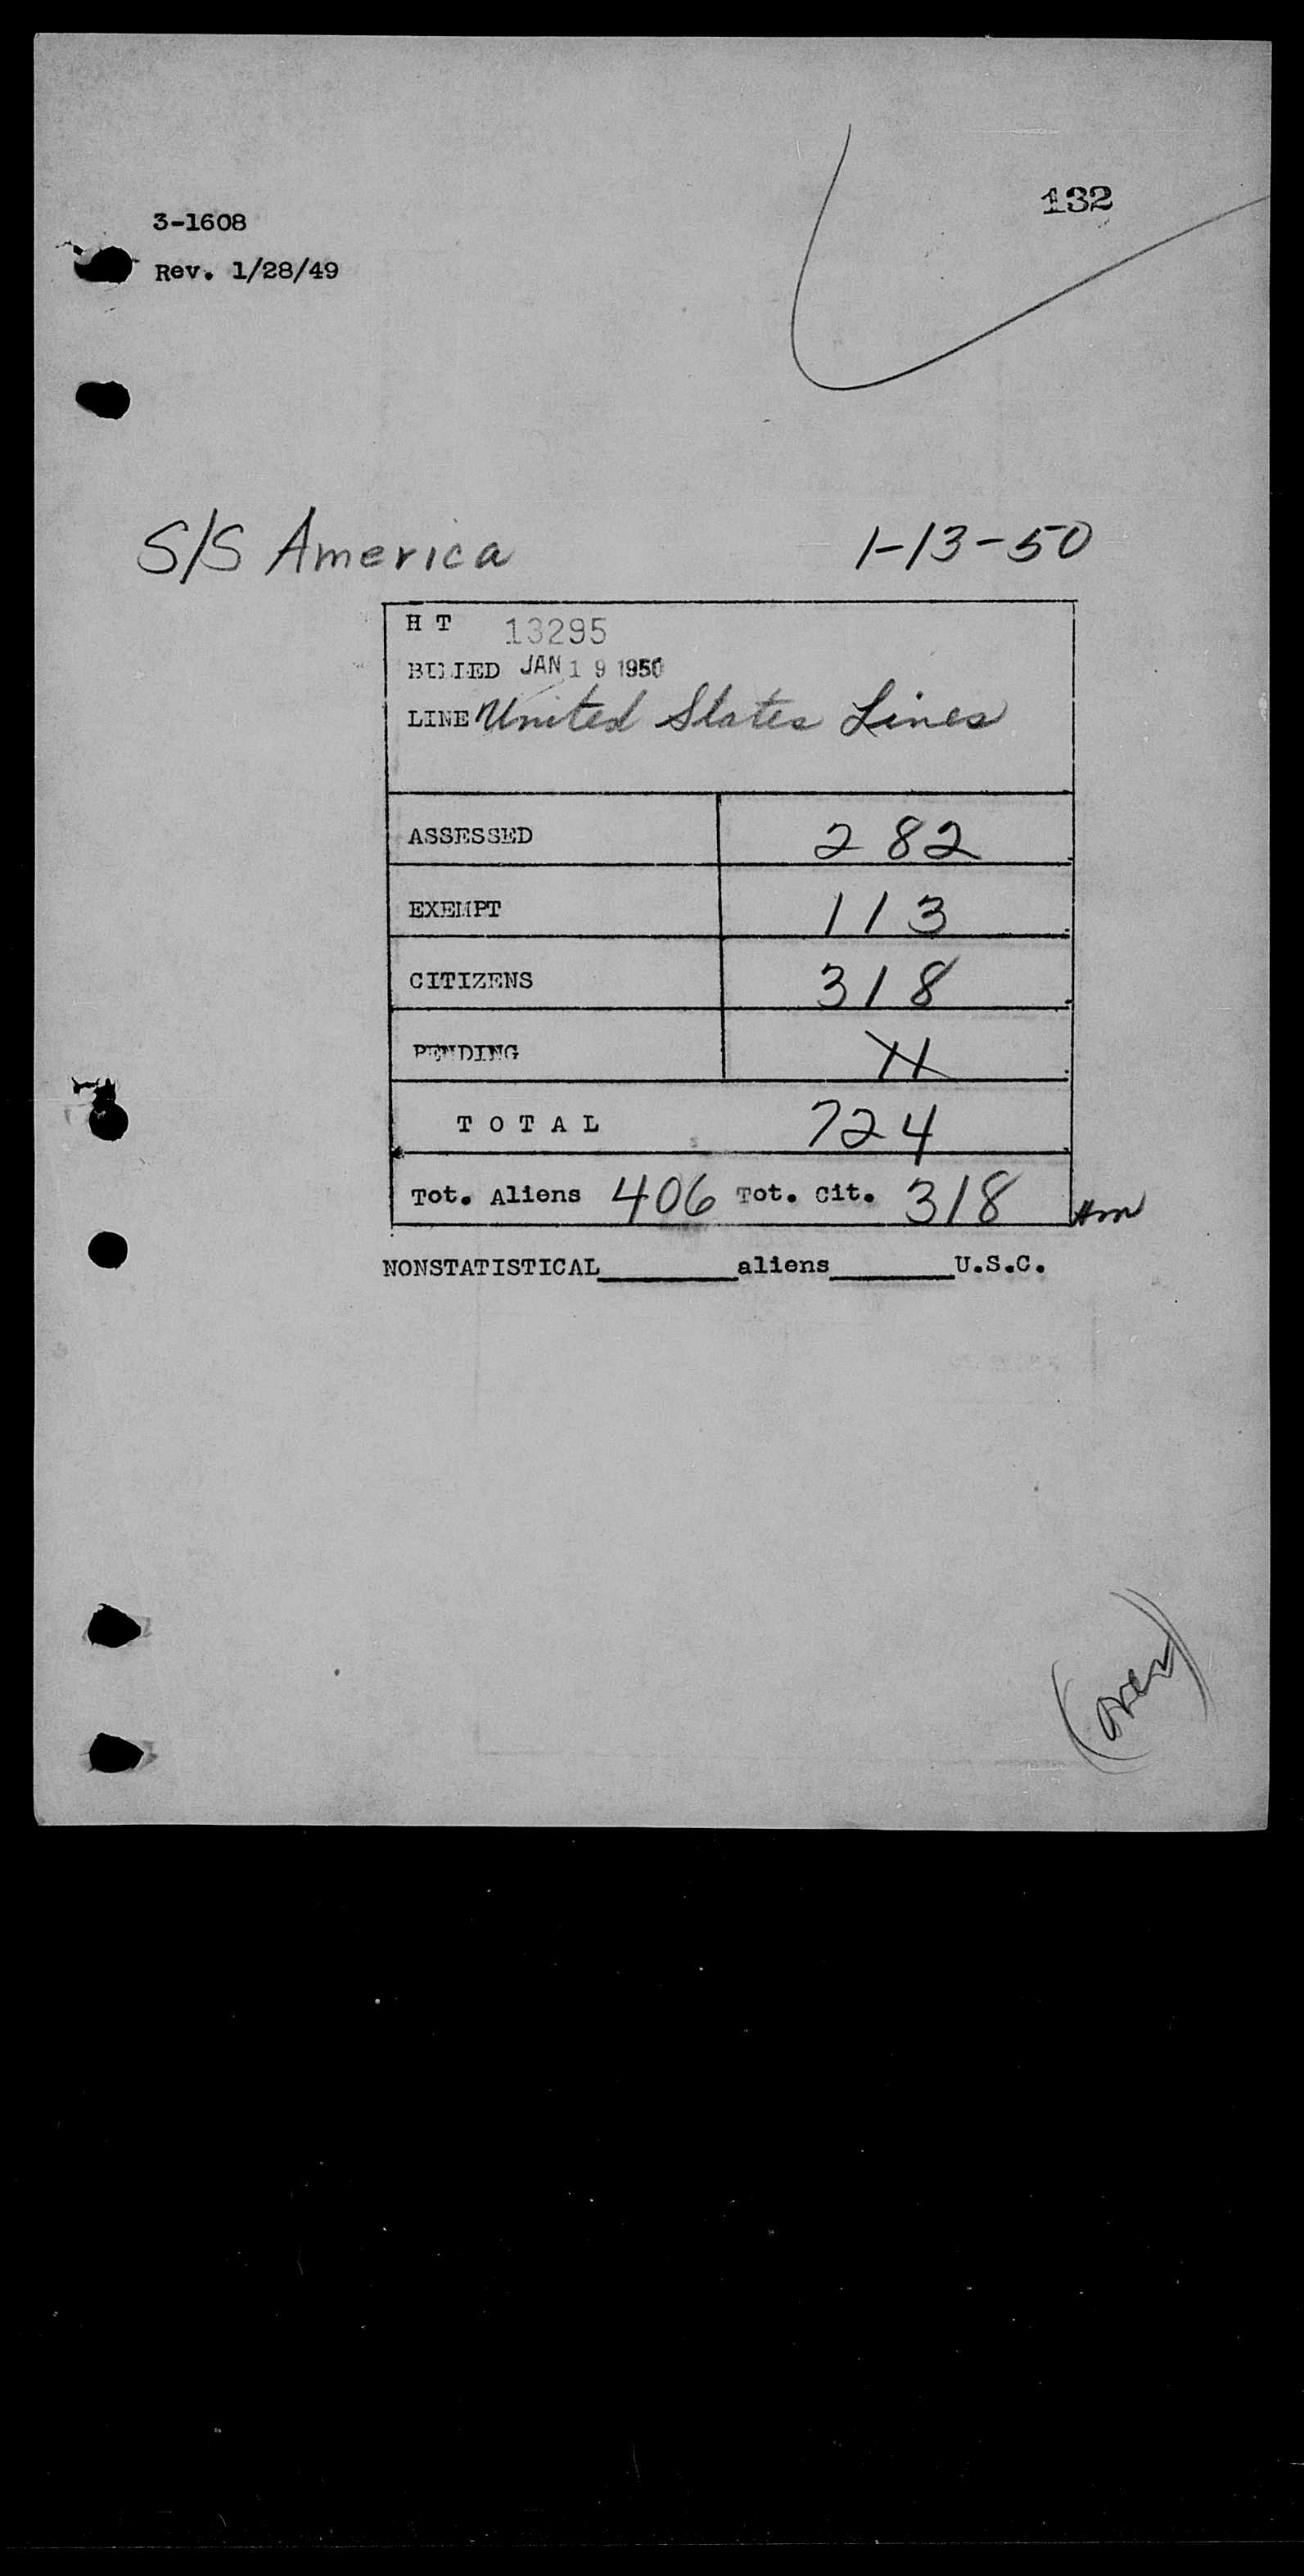 132
3-1608
Rev. 1/28/49
S/S America 1-13-50
H T 13295
BILLED JAN 19 1950
LINE United States Lines
ASSESSED 282
EXEMPT 113
CITIZENS 318
PENDING 11
TOTAL 724
Tot. Aliens 406 Tot. Cit. 318
NONSTATISTICAL________aliens_______U.S.C.
(over)